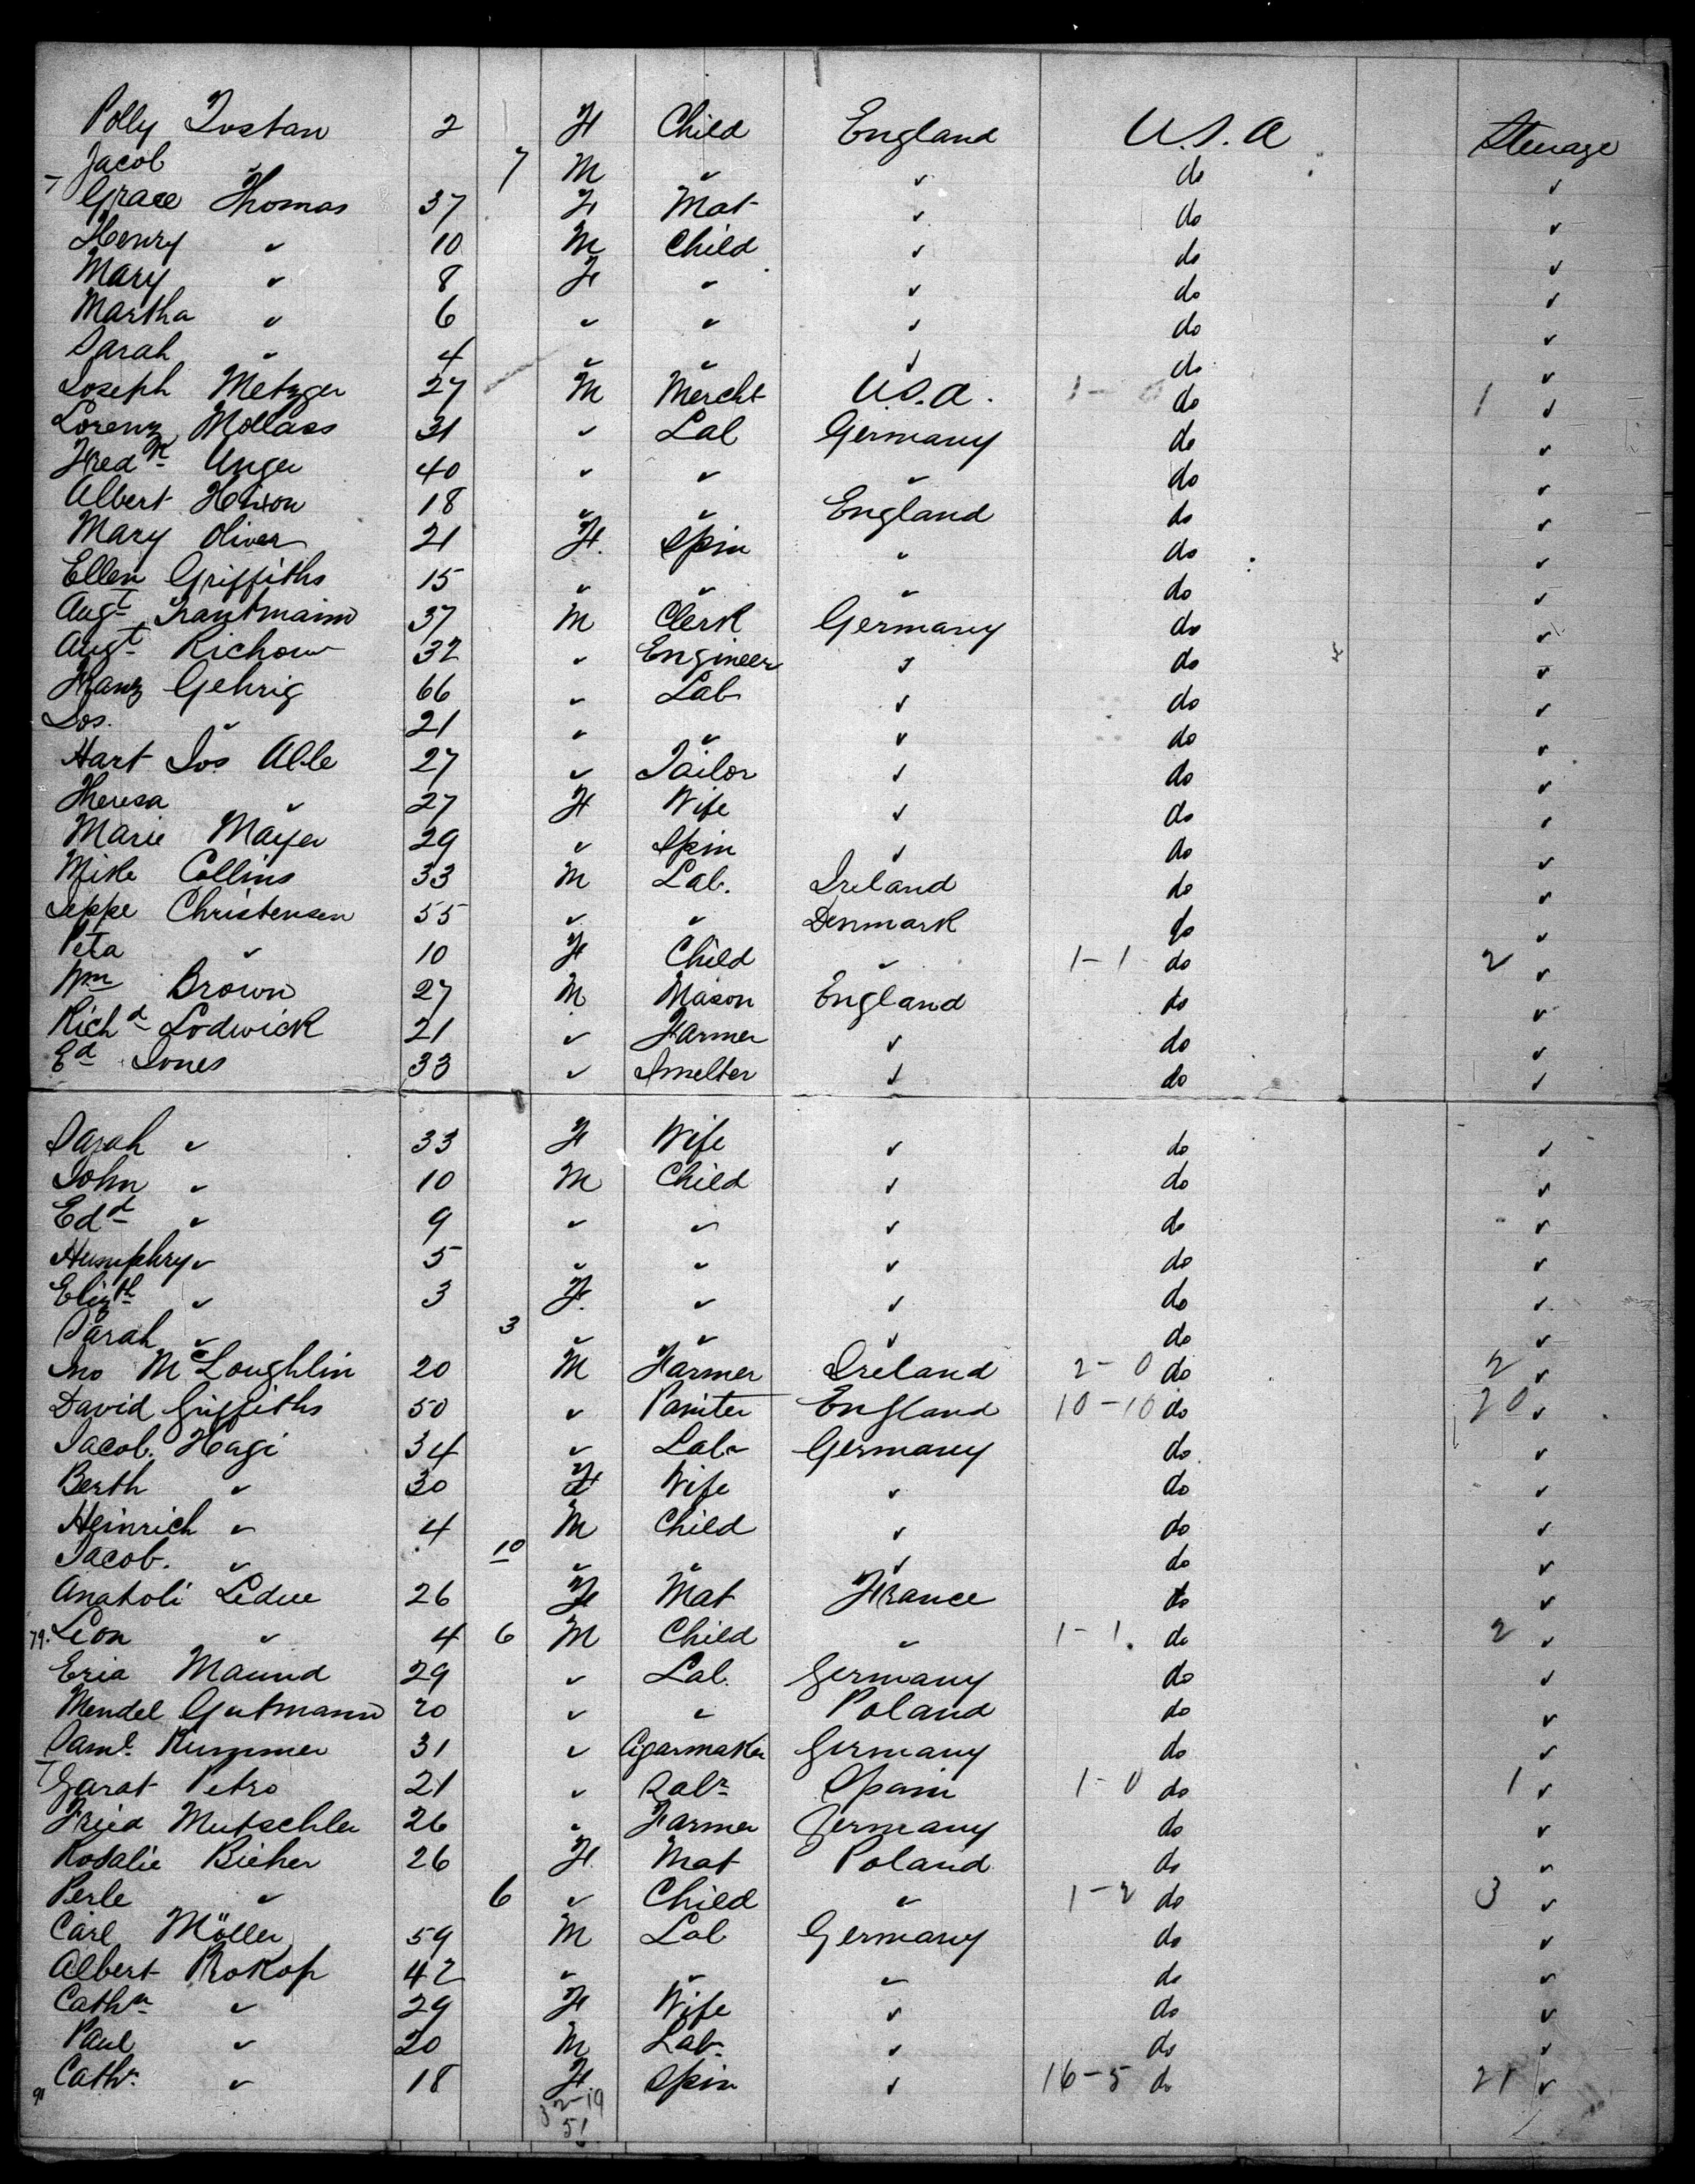 Polly Tostan 2 F Child England U.S.A Steerage
Jacob " 7 M " " do "
Grace Thomas 37 F Mat " do "
Henry " 10 M Child " do "
Mary " 8 F " " do "
Martha " 6 " " " do "
Sarah " 4 " " " do "
Joseph Metzger 27 M Mercht U.S.A. 1- do 1 "
Lorenz Mollass 31 " Lab Germany do "
Fredk Unger 40 " " " do "
Albert 18 " " England do "
Mary Oliver 21 F. Spin " do "
Ellen Griffiths 15 " " " do "
Augt Trautmann 37 M Clerk Germany do "
Augt Richow 32 " Engineer " do "
Franz Gehrig 66 " Lab " do "
Jos. " 21 " " " do "
Hart Jos Alle 27 " Tailor " do "
Theresa " 27 F Wife " do "
Marie Mayer 29 " Spin " do "
Mike Collins 33 M Lab. Ireland do "
Jeppe Christensen 55 " " Denmark do "
Peta " 10 F Child " 1-1 do 2 "
Wm Brown 27 M Mason England do "
Richd Lodwick 21 " Farmer " do "
Ed Jones 33 " Smelter " do "
Sarah " 33 F Wife " do "
John " 10 M Child " do "
Edd " 9 " " " do "
Humphry " 5 " " " do "
Elizth " 3 F. " " do "
Sarah " 3 " " " do "
Jno McLoughlin 20 M Farmer Ireland 2-0 do 2 "
David Griffiths 50 " Painter England 10-10 do 20 "
Jacob. Hagi 34 " Labr Germany do "
Berth " 30 F Wife " do "
Heinrich " 4 M Child " do "
Jacob. " 10 " " " do "
Anatoli Leduc 26 F Mat France do "
79. Leon " 4 6 M Child " 1-1. do 2 "
Eria Maund 29 " Lab. Germany do "
Mendel Gutmann 20 " " Poland do "
Saml. Kummer 31 " Cigarmaker Germany do "
Garat Petro 21 " Labr Spain 1-0 do 1 "
Fried Mutschler 26 " Farmer Germany do "
Rosalie Bieher 26 F. Mat Poland do "
Perle " 6 " Child " 1-2 do 3 "
Carl Möller 59 M Lab Germany do "
Albert Prokop 42 " " " do "
Cathn " 29 F Wife " do "
Paul " 20 M Lab. " do "
91 Cathn " 18 F Spin " 16-5 do 21 "
32-19
51